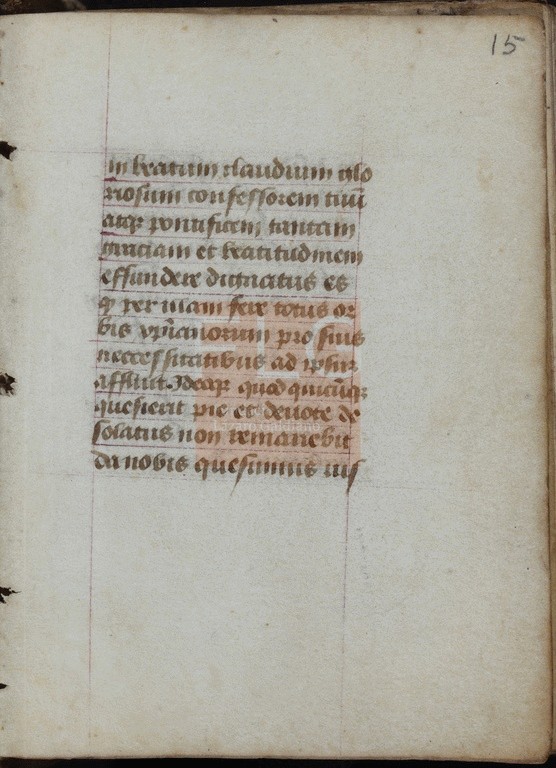 15
in beatum claudium glo
riosum confessorem tuū
atqꝫ pontificem tantam
graciam et beatitudinem
effundere dignatus es
ꝙ per illam fere totus or
bis xp̄ianorum pro suis
neccessitatibus ad ipsum
affluit Ideoqꝫ quod quicūqꝫ
quesierit pie et deuote de
solatus non remanebit
da nobis quesumus
Lázaro Galdiano